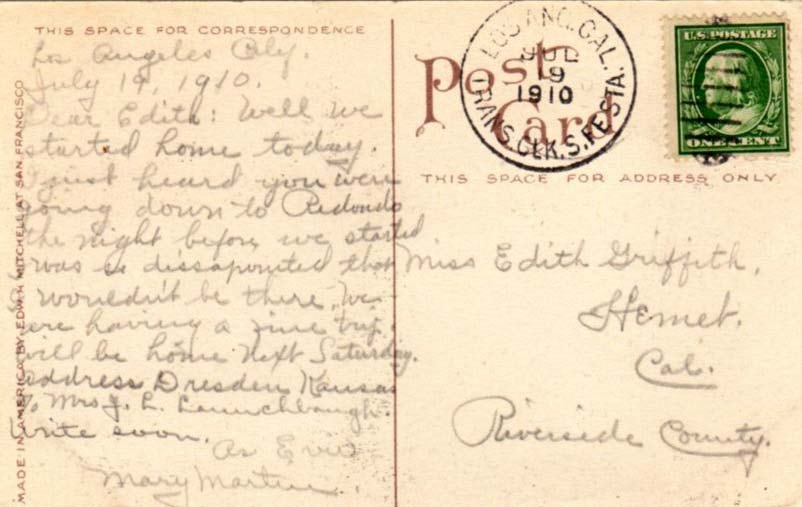 THIS SPACE FOR CORRESPONDENCE
Los Angeles Caly.
July 19, 1910.
Dear Edith: Well we
started home today.
I just heard you were
going down to Redondo
the night before we started
I was so dissapointed that
I wouldn't be there. We
are having a fine trip.
will be home next Saturday.
Address Dresden Kansas
% Mrs J. L. Launchbaugh.
Write soon.
As Ever
Mary Martin.
MADE IN AMERICA BY EDW H MITCHELL AT SAN FRANCISCO
Post
Card
LOS ANG. CAL.
JUL
9
1910
TRANS. CLK. S. FE STA.
U.S. POSTAGE
ONE CENT
THIS SPACE FOR ADDRESS ONLY
Miss Edith Griffith,
Hemet.
Cal.
Riverside County.